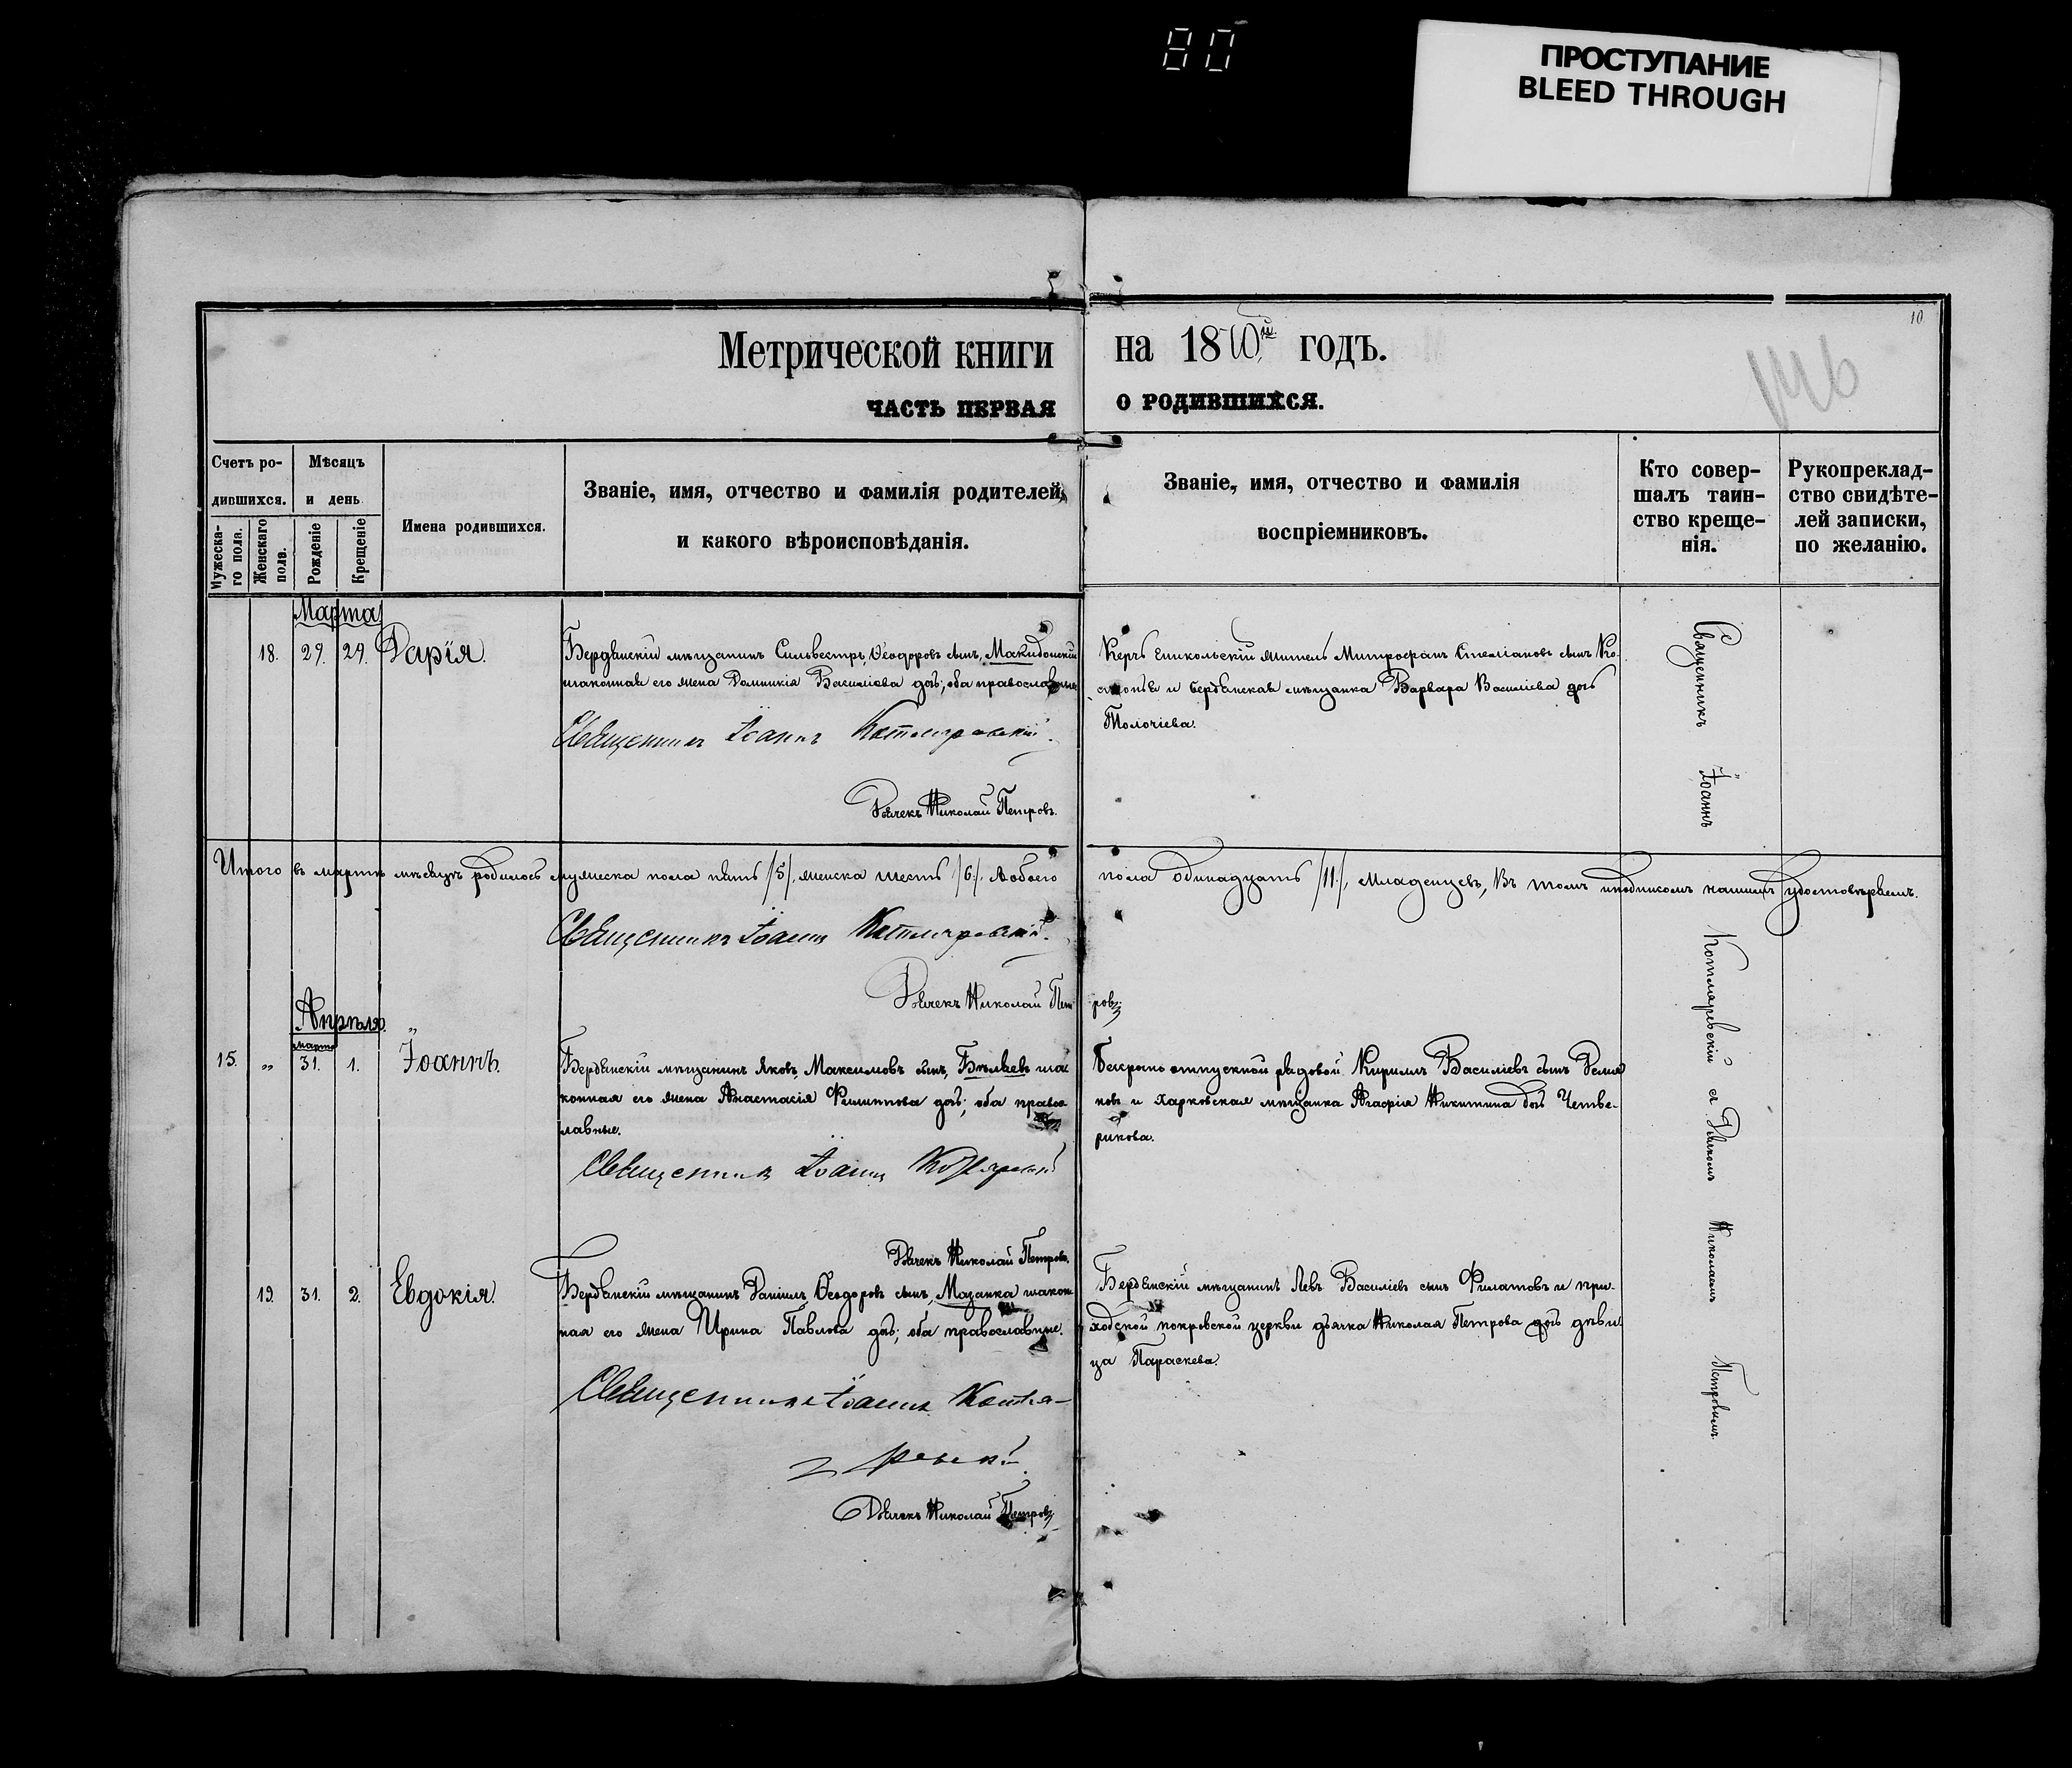 80
ПРОСТУПАНИЕ
BLEED THROUGH
10
Метрической книги на 18 годъ.
146
ЧАСТЬ ПЕРВАЯ О РОДИВШИХСЯ.
Счетъ ро-
дившихся.
Мужеска-
го пола.
Женскаго
пола.
Мѣсяцъ
и день
Рожденіе
Крещеніе
Имена родившихся.
Званіе, имя, отчество и фамилія родителей,
и какого вѣроисповѣданія.
Званіе, имя, отчество и фамилія
воспріемниковъ.
Кто совер-
шалъ таин-
ство креще-
нія.
Рукоприклад-
ство свидѣте-
лей записки,
по желанію.
Марта
18. 29. 29. Дарія.
Бердянскій мѣщанинъ Сильвестръ Ѳеодоровъ сынъ, Макидонскій
законная его жена Домникія Василіева дочь; оба православные
Священникъ Іоаннъ Котляревскій.
Дьячекъ Николай Петровъ.
Керчь Еникольскій житель Митрофанъ Стеліановъ сынъ
и бердянская мѣщанка Варвара Василіева дочь
Толочіева.
Итого въ мартѣ мѣсяцѣ родилось мужеска пола пять /5/, женска шесть /6/, обоего пола одинадцать /11/, младенцевъ, Въ томъ подписомъ нашимъ удостовѣряемъ.
Священникъ Іоаннъ Котляревскій.
Дьячекъ Николай Петровъ
Апрѣля
марта
15. „ 31. 1. Іоаннъ.
Бердянскій мѣщанинъ Яковъ, Максимовъ сынъ, Бѣляевъ за
конная его жена Анастасія Филиппова дочь; оба правос
лавные.
Священникъ Іоаннъ Котляревскій
Дьячекъ Николай Петровъ.
Безсрочно отпускной рядовой Кирилъ Василіевъ сынъ
ковъ и Харковская мѣщанка Агафія Никитина дочь Четве-
рикова.
19. 31. 2. Евдокія.
Бердянскій мѣщанинъ Даніилъ Ѳеодоровъ сынъ, Мазанка закон
ная его жена Ирина Павлова дочь; оба православные.
Священникъ Іоаннъ Котля-
ревскій
Дьячекъ Николай Петровъ
Бердянскій мѣщанинъ Левъ Василіевъ сынъ Филатовъ и при-
ходской покровской церкви дьячка Николая Петрова дочь дѣви
ца Параскева.
Священникъ Іоаннъ Котляревскій съ Дьячкомъ Николаемъ Петровымъ.